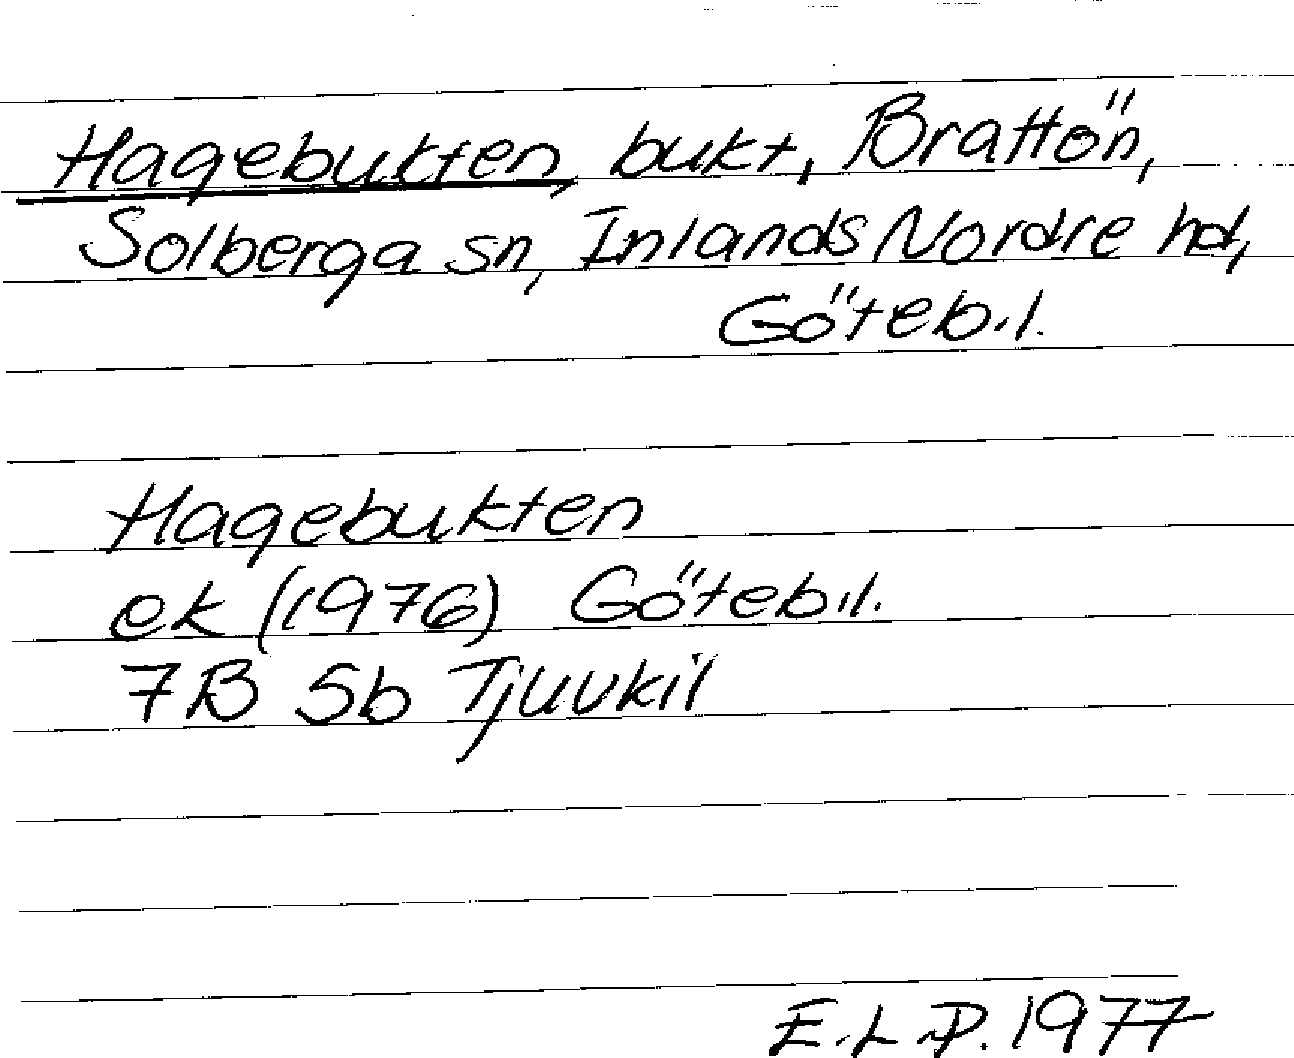 Hagebukten, bukt, Brattön,
Solberga sn, Inlands Nordre hd,
Göteb.l.
Hagebukten
ek (1976) Göteb.l.
7B 5b Tjuvkil
E.L.P. 1977